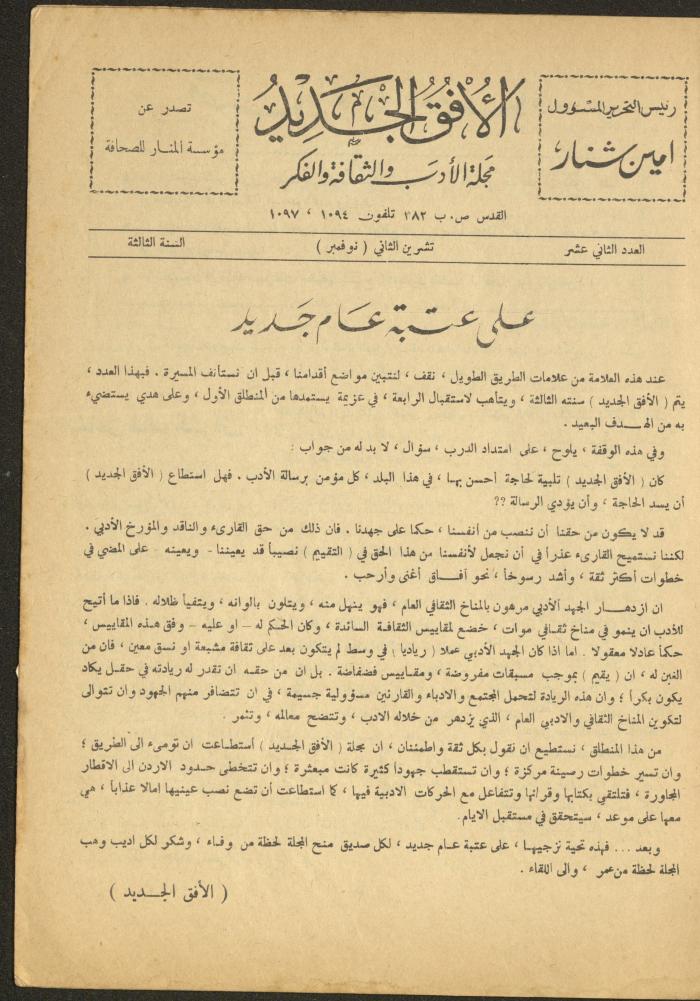 رئيس التحرير المسؤول
امين شنار
الأفق الجديد
مجلة الأدب والثقافة والفكر
تصدر عن
مؤسسة المنار للصحافة
القدس ص.ب ٣٨٢ تلفون ١٠٩٤ ، ١٠٩٧
العدد الثاني عشر
تشرين الثاني ( نوفمبر )
السنة الثالثة
على عتبة عام جديد
عند هذه العلامة من علامات الطريق الطويل ، نقف ، لنتبين مواضع أقدامنا ، قبل ان نستأنف المسيرة . فبهذا العدد ،
يتم ( الأفق الجديد ) سنته الثالثة ، ويتأهب لاستقبال الرابعة ، في عزيمة يستمدها من المنطلق الأول ، وعلى هدي يستضيء
به من الهدف البعيد .
وفي هذه الوقفة ، يلوح ، على امتداد الدرب ، سؤال ، لا بد له من جواب :
كان ( الأفق الجديد ) تلبية لحاجة أحسن بها ، في هذا البلد ، كل مؤمن برسالة الأدب . فهل استطاع ( الأفق الجديد )
أن يسد الحاجة ، وأن يؤدي الرسالة ??
قد لا يكون من حقنا أن ننصب من أنفسنا ، حكما على جهدنا . فان ذلك من حق القارىء والناقد والمؤرخ الأدبي .
لكننا نستميح القارىء عذراً في أن نجعل لأنفسنا من هذا الحق في ( التقييم ) نصيباً قد يعيننا - ويعينه - على المضي في
خطوات أكثر ثقة ، وأشد رسوخاً ، نحو آفاق أغنى وأرحب .
ان ازدهار الجهد الأدبي مرهون بالمناخ الثقافي العام ، فهو ينهل منه ، ويتلون بالوانه ، ويتفيأ ظلاله . فاذا ما أتيح
للأدب ان ينمو في مناخ ثقافي موات ، خضع لمقاييس الثقافة السائدة ، وكان الحكم له – او عليه – وفق هذه المقاييس ،
حكماً عادلا معقولا . اما اذا كان الجهد الأدبي عملا ( رياديا ) في وسط لم يتكون بعد على ثقافة مشبعة او نسق معين ، فان من
الغبن له ، ان ( يقيم ) بموجب مسبقات مفروضة ، ومقاييس فضفاضة . بل ان من حقه ان تقدر له ريادته في حقل يكاد
يكون بكراً ؛ وان هذه الريادة لتحمل المجتمع والادباء والقارئين مسؤولية جسيمة ، في ان تتضافر منهم الجهود وان تتوالى
لتكوين المناخ الثقافي والادبي العام ، الذي يزدهر من خلاله الادب ، وتتضح معالمه ، وتثمر .
من هذا المنطلق ، نستطيع ان نقول بكل ثقة واطمئنان ، ان مجلة ( الأفق الجديد ) أستطاعت ان تومىء الى الطريق ؛
وان تسير خطوات رصينة مركزة ؛ وان تستقطب جهوداً كثيرة كانت مبعثرة ؛ وان تتخطى حدود الاردن الى الاقطار
المجاورة ، فتلتقي بكتابها وقرائها وتتفاعل مع الحركات الادبية فيها ، كما استطاعت أن تضع نصب عينيها امالا عذاباً ، هي
معها على موعد ، سيتحقق في مستقبل الايام.
وبعد ... فهذه تحية نزجيها ، على عتبة عام جديد ، لكل صديق منح المجلة لحظة من وفاء ، وشكر لكل اديب وهب
المجلة لحظة من عمر ، والى اللقاء .
( الأفق الجديد )